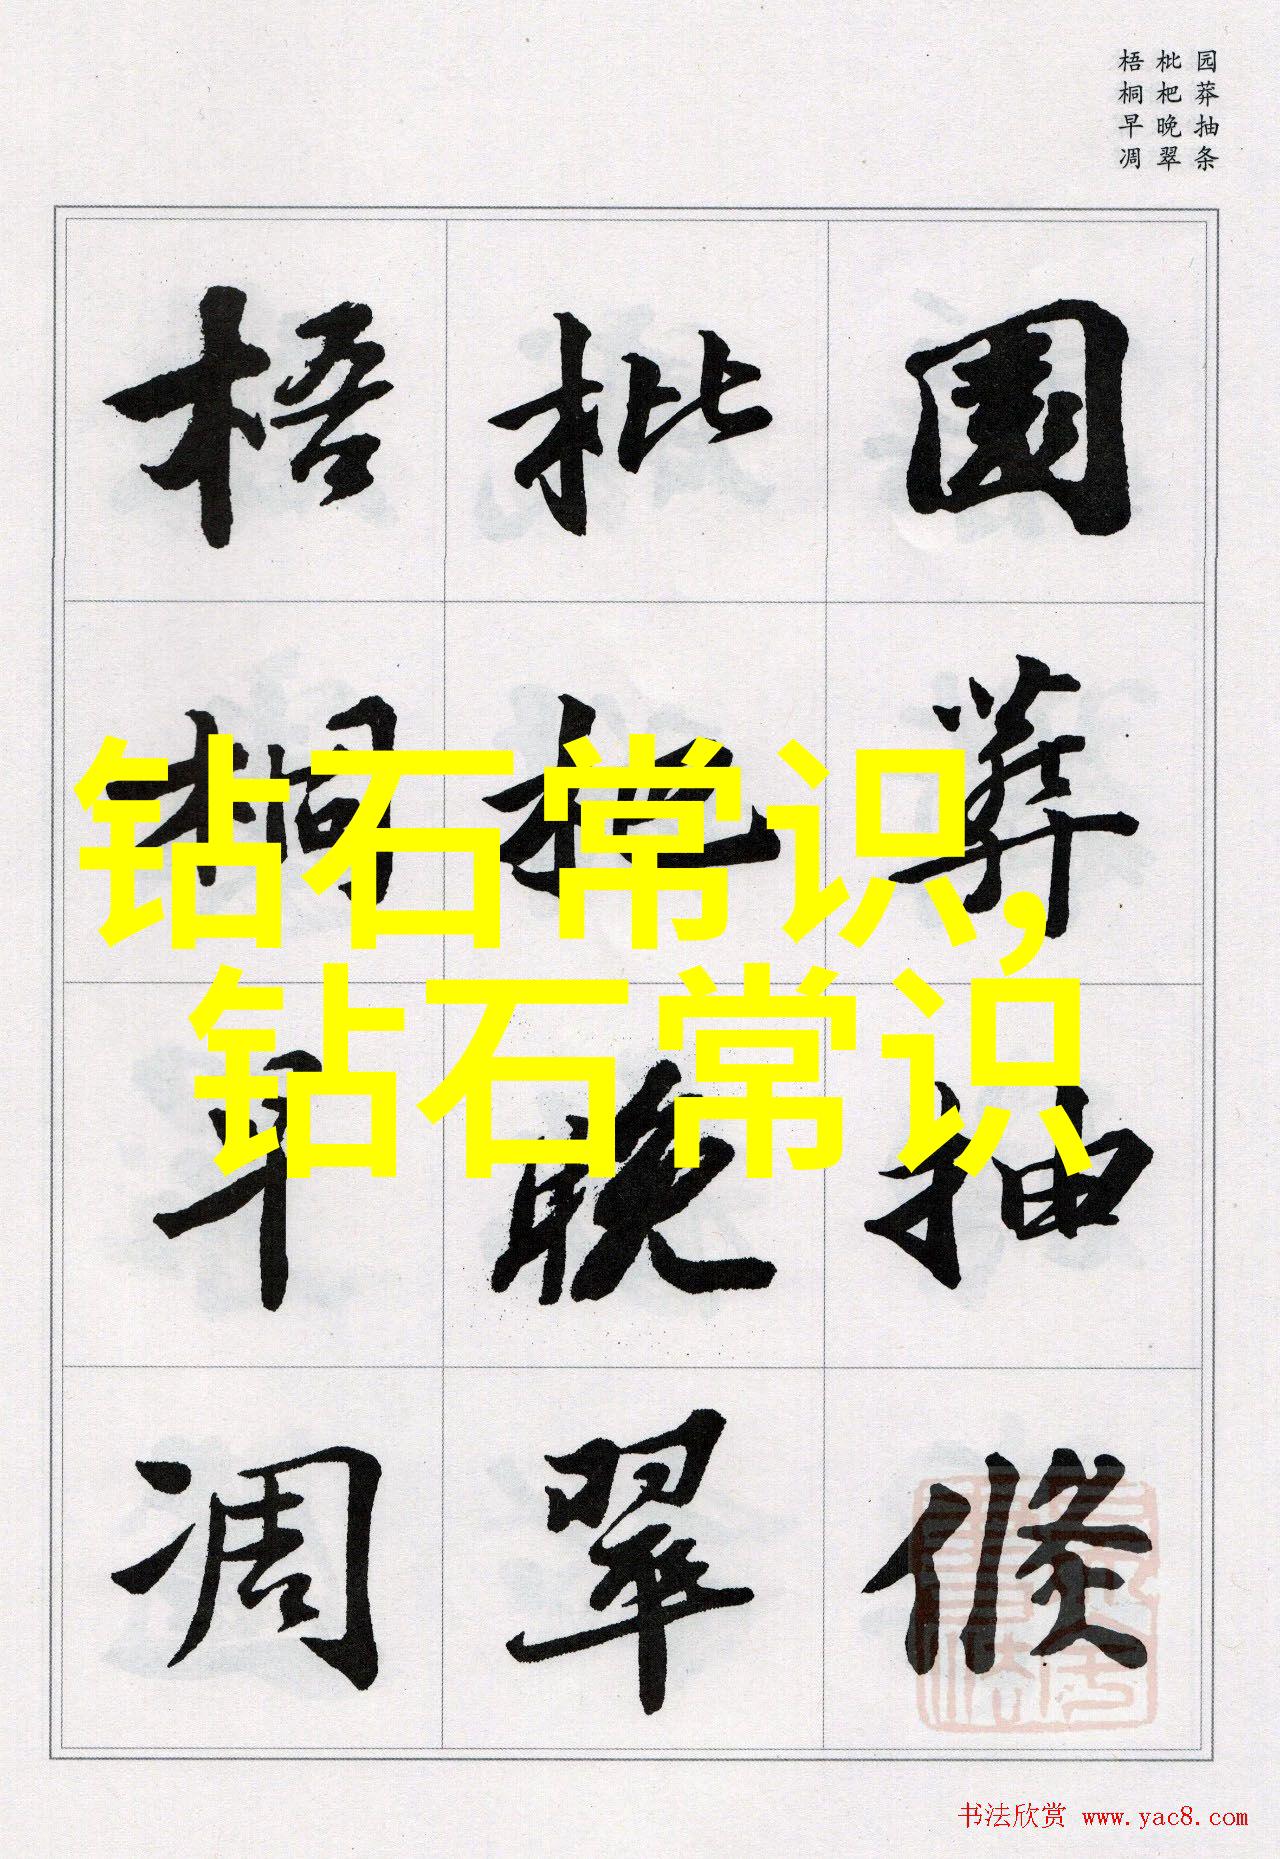 园莽抽条
枇杷晚翠
梧桐早凋
園莽抽條
枇杷晚翠
梧桐早凋
钻石常识,
钻石常识
书法欣赏 www.yac8.com